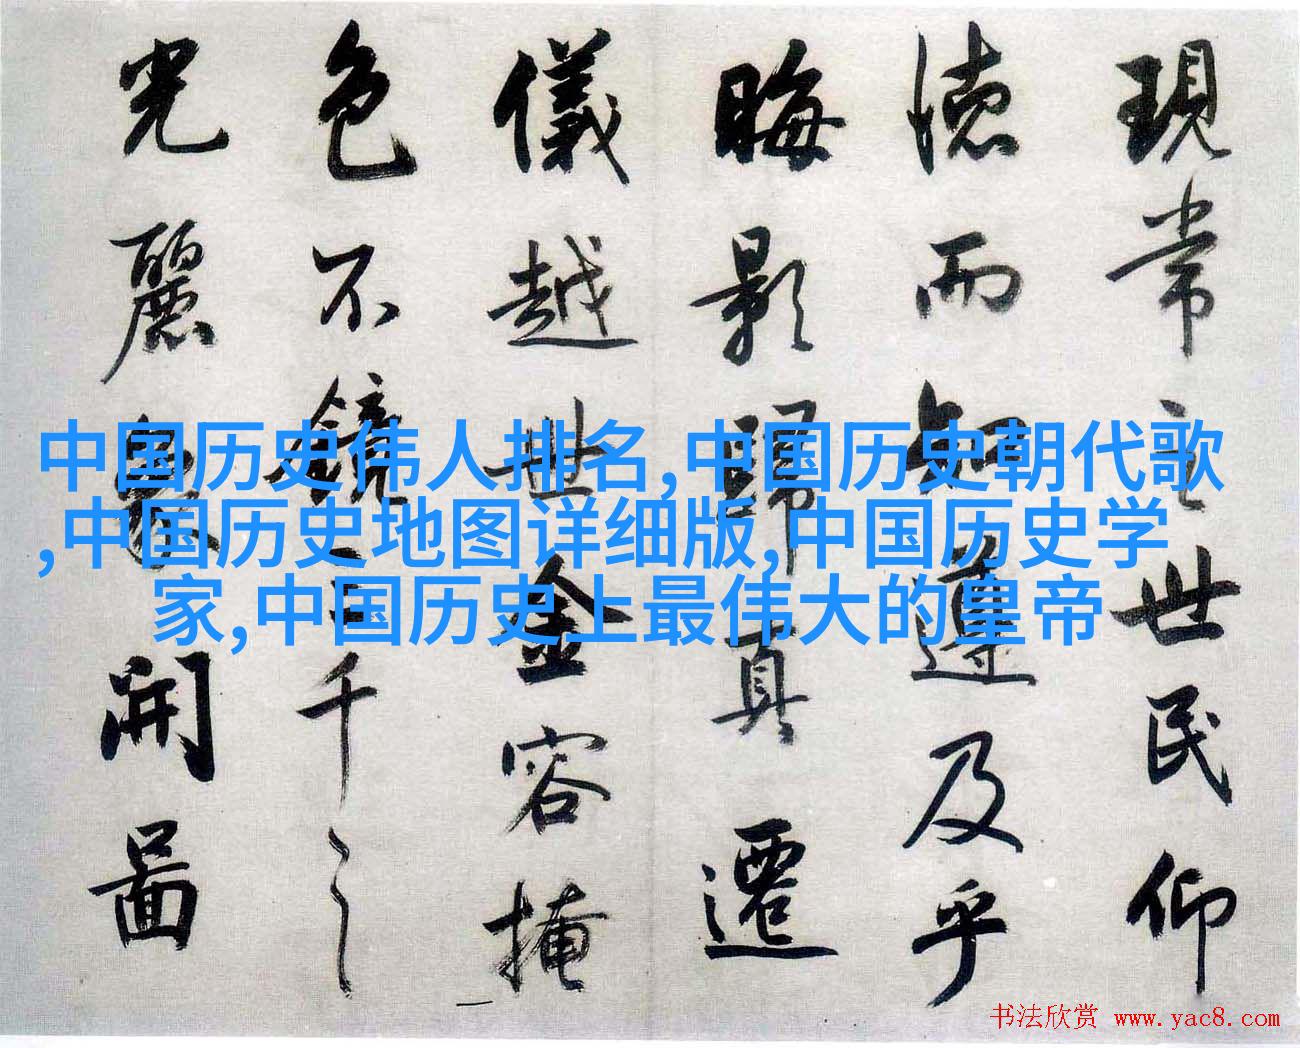 現常之世民仰
德而知遵及乎
晦影歸真遷
儀越世金容掩
色不鏡三千之
光麗象開圖
中国历史伟人排名,中国历史朝代歌
,中国历史地图详细版,中国历史学
家,中国历史上最伟大的皇帝
书法欣赏 www.yac8.com